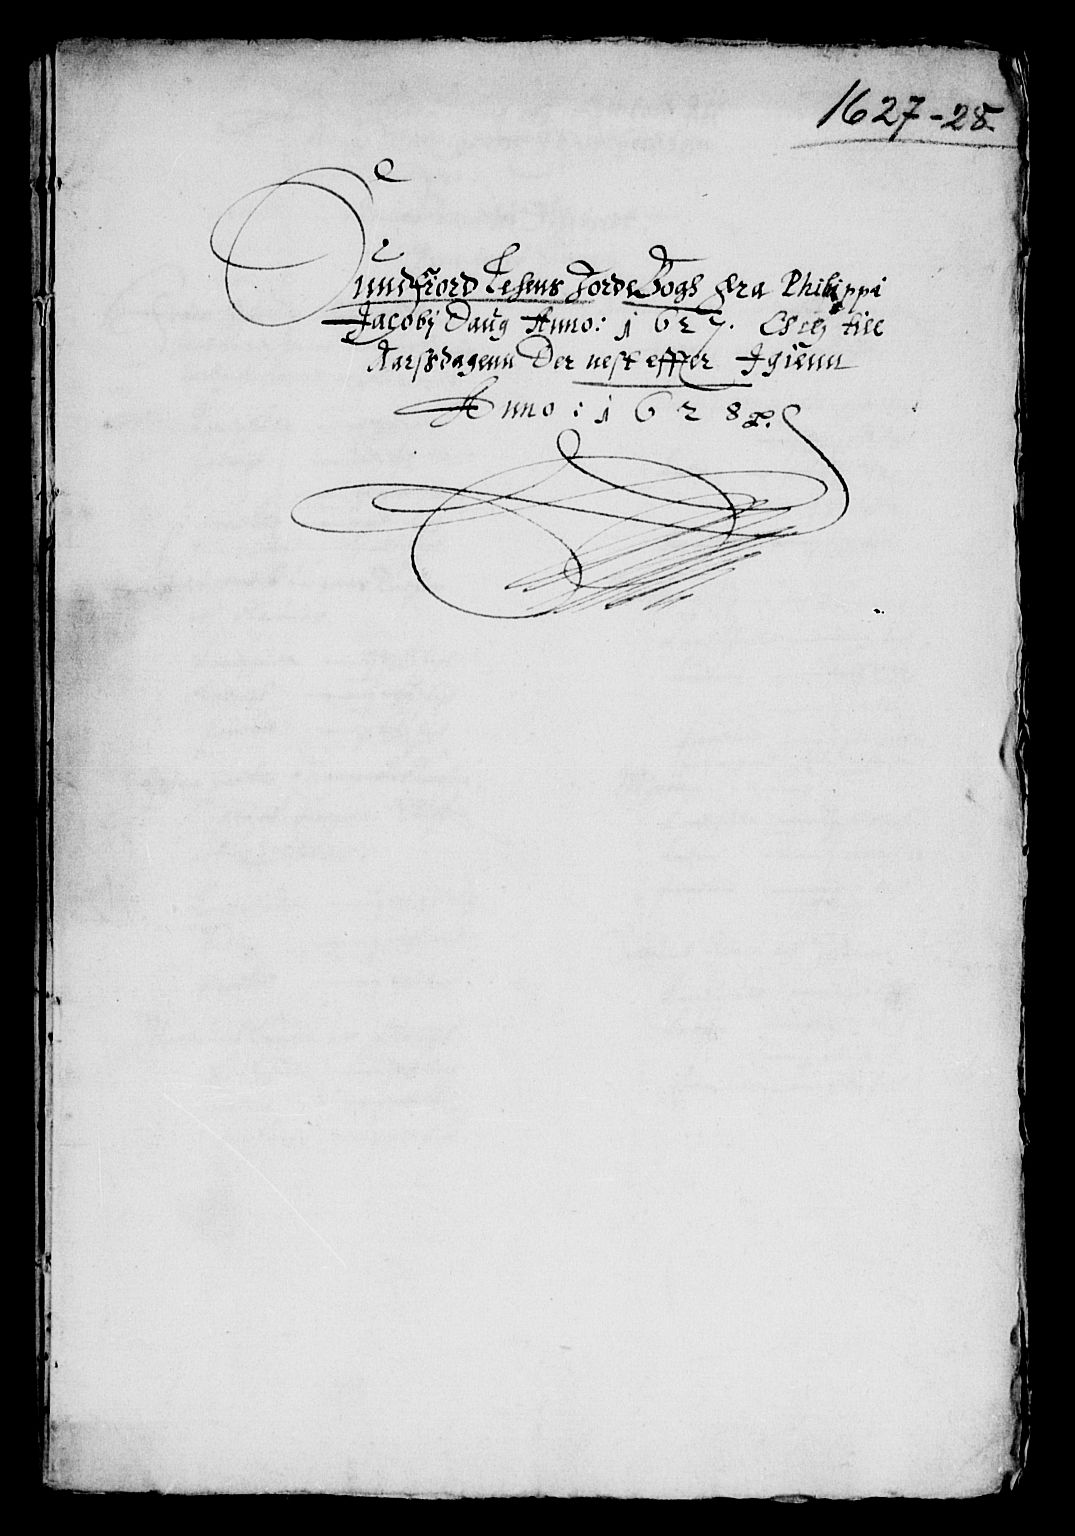 1627-28
Sundfiord Lehens Jorde Bogh Fra Philippi
Jacobj Daug Anno: 1627. Och till
Aarssdagenn Der nest effter Igienn
Anno: 1628 &c.